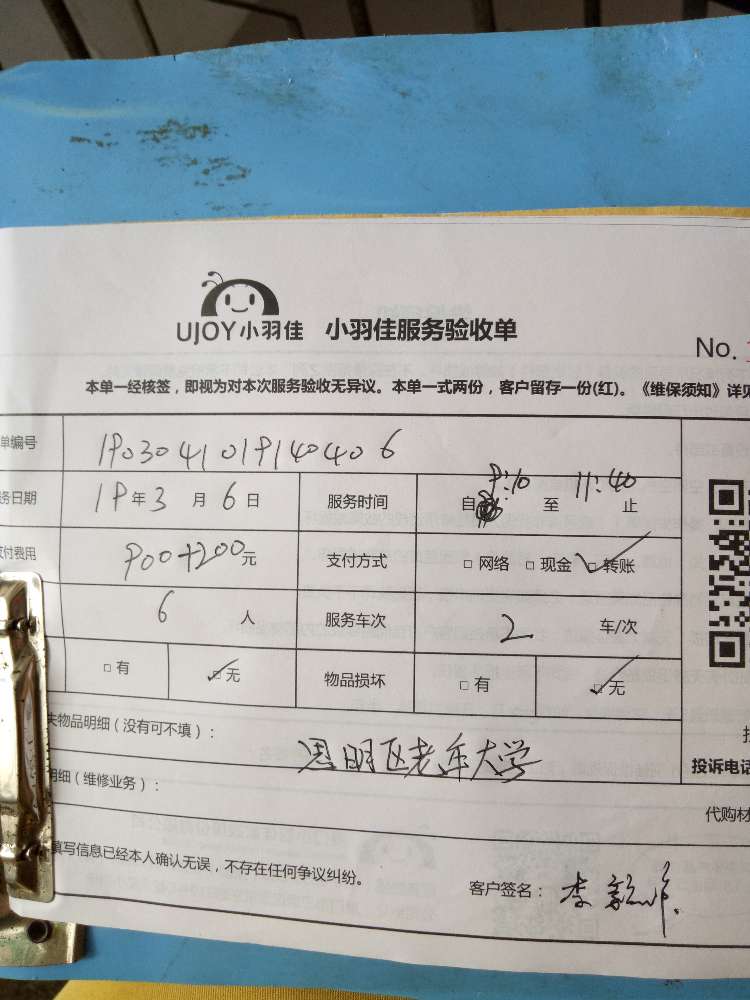 UJOY小羽佳 小羽佳服务验收单
No.
本单一经核签，即视为对本次服务验收无异议。本单一式两份，客户留存一份(红)。《维保须知》详见
单编号 1903041019140406
务日期 19年3月6日 服务时间 自9:10至11:40止
支付费用 900+200元 支付方式 □ 网络 □ 现金 □ 转账
6 人 服务车次 2 车/次
□ 有 □ 无 物品损坏 □ 有 □ 无
失物品明细（没有可不填）：
思明区老年大学
投诉电话
明细（维修业务）：
代购材
填写信息已经本人确认无误，不存在任何争议纠纷。
客户签名： 李